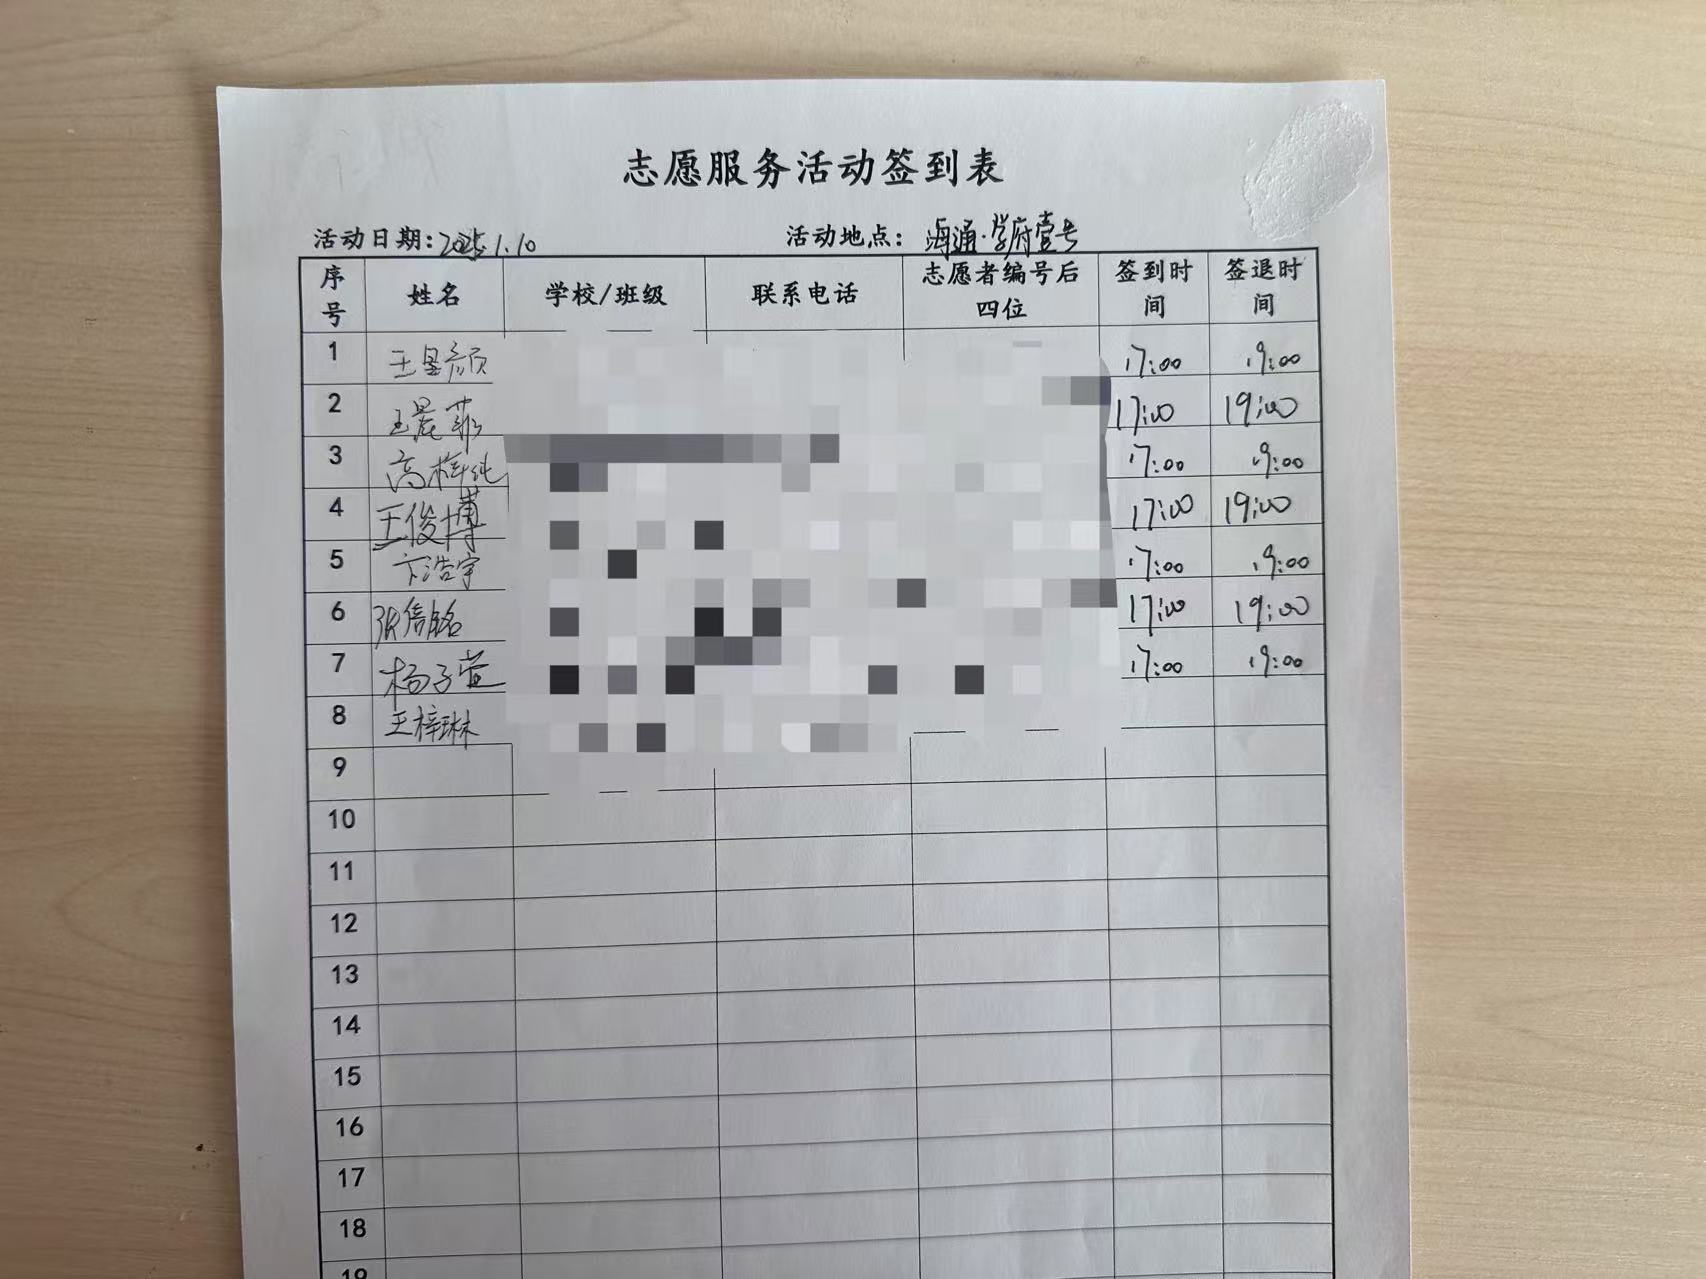 志愿服务活动签到表
活动日期：2025.1.10 活动地点：海通·学府壹号
序号 姓名 学校/班级 联系电话 志愿者编号后四位 签到时间 签退时间
1 王昱颜 17:00 19:00
2 王晨菲 17:00 19:00
3 高梓纯 17:00 19:00
4 王俊博 17:00 19:00
5 卞浩宇 17:00 19:00
6 张倍铭 17:00 19:00
7 杨子萱 17:00 19:00
8 王梓琳
9
10
11
12
13
14
15
16
17
18
19